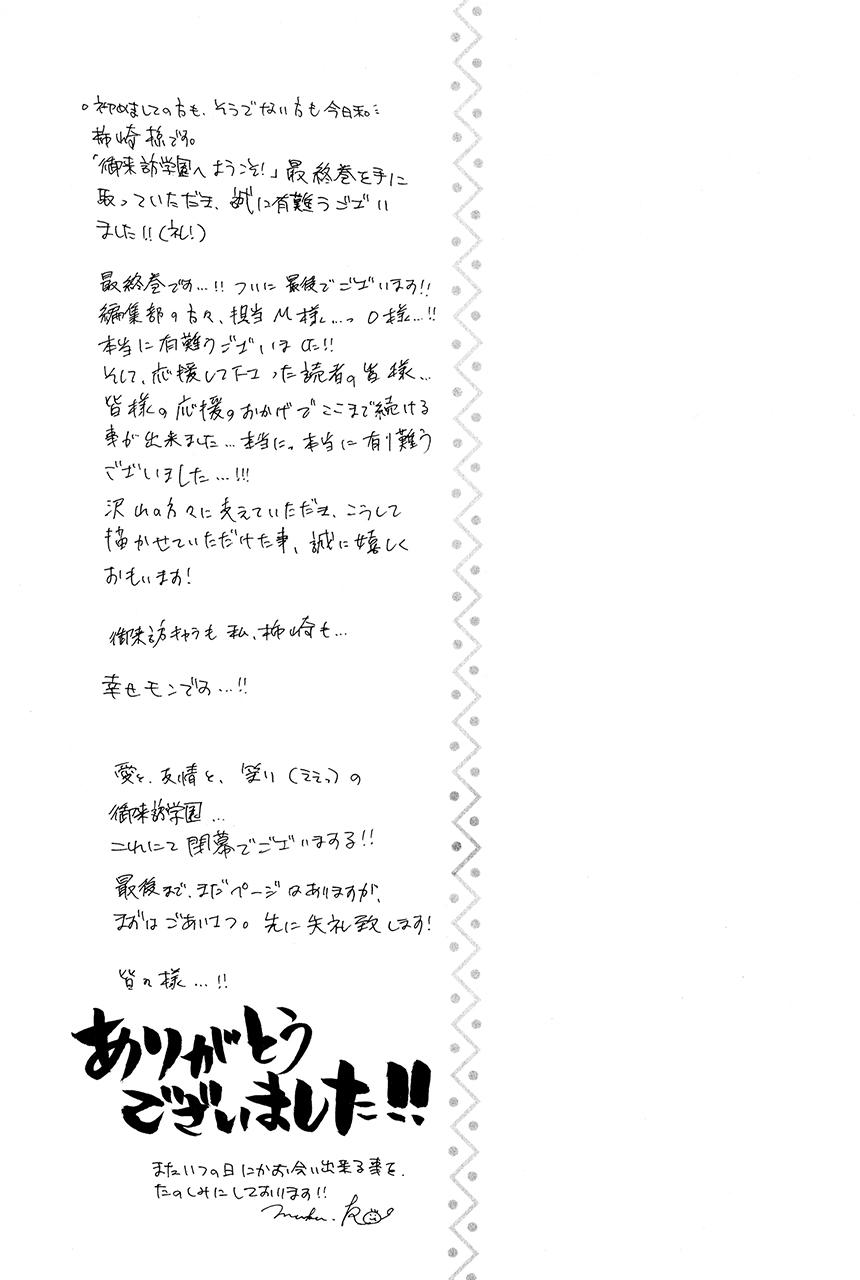 。初めましての方も、そうでない方も今日和。:
柿崎椋です。
「御来訪学園へようこそ!」最終巻を手に
取っていただき、誠に有難うござい
ました!!(礼!)
最終巻です…!! ついに最後でございます!!
編集部の方々、担当M様…っO様…!!
本当に有難うございました!!
そして、応援して下さった読者の皆様…
皆様の応援のおかげでここまで続ける
事が出来ました…本当に。本当に有り難う
ございました…!!!
沢山の方々に支えていただき、こうして
描かせていただけた事、誠に嬉しく
おもいます!
御来訪キャラも私、柿崎も…
幸せモンです…!!
愛と、友情と、笑い(ええっ)の
御来訪学園…
これにて閉幕でございまする!!
最後まで、まだページはありますが、
まずはごあいさつ。先に失礼致します!
皆々様…!!
ありがとう
ございました!!
またいつの日にかお会い出来る事を、
たのしみにしております!!